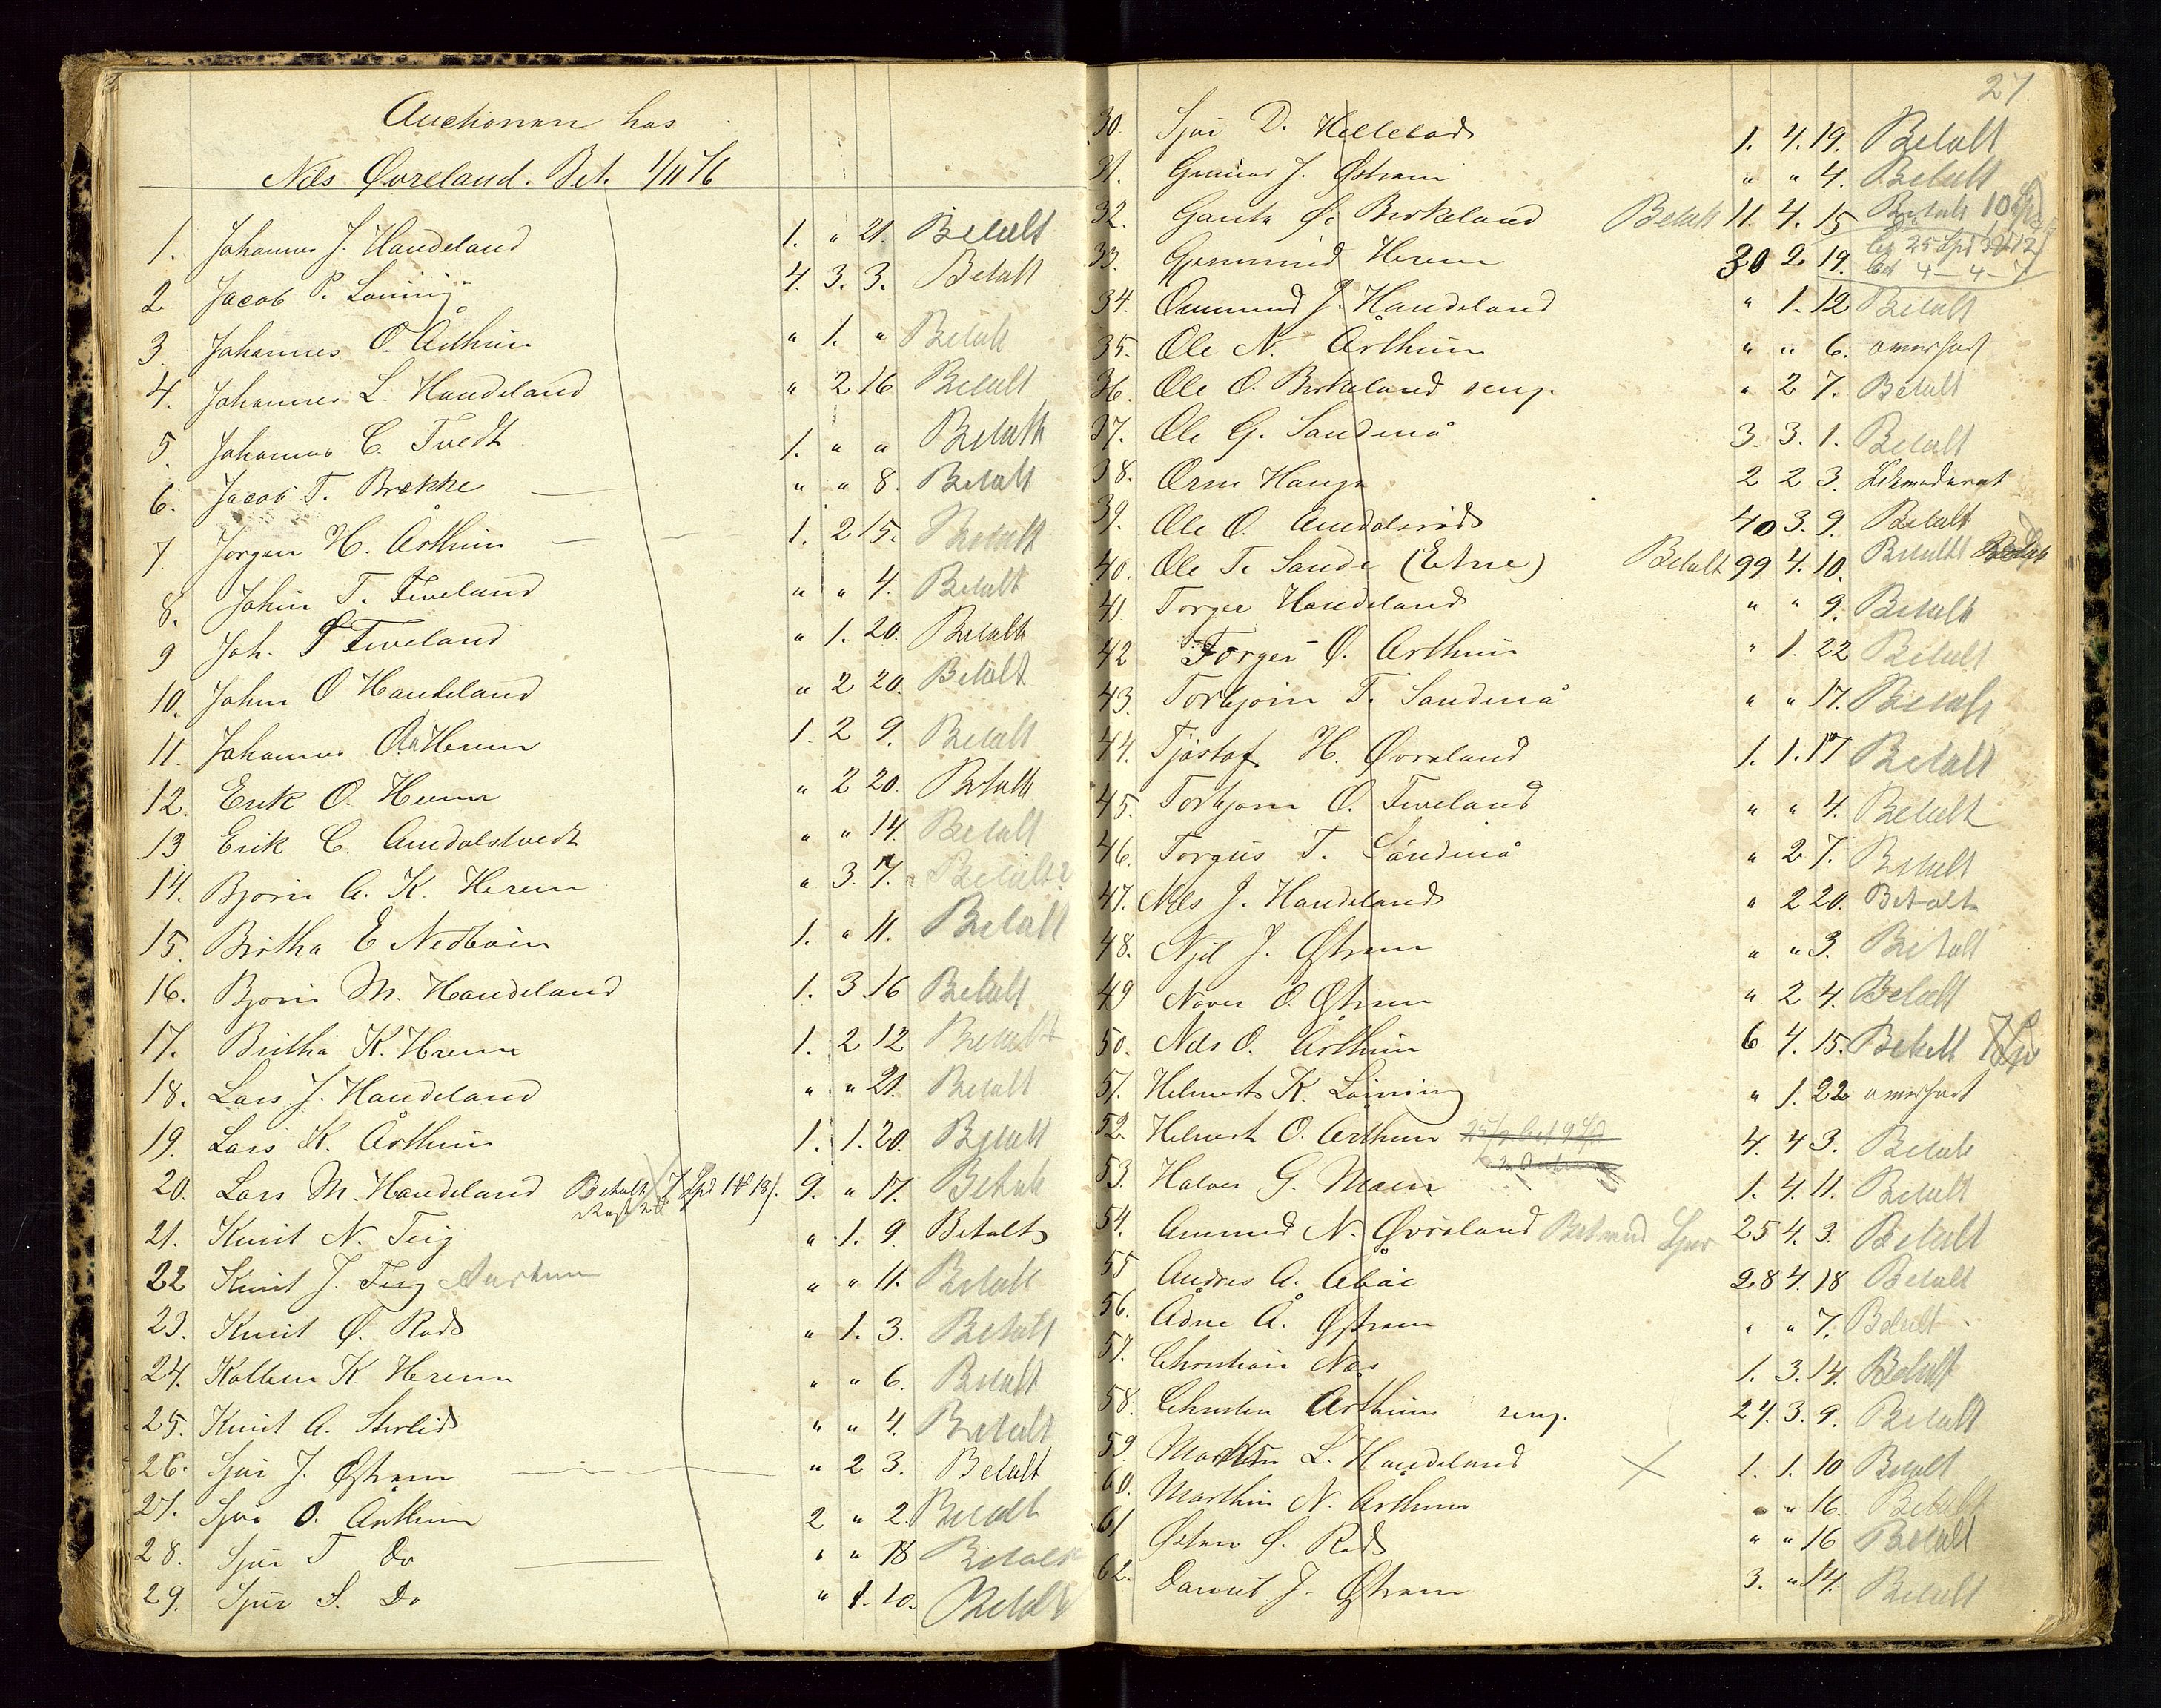 Auctionen hos
Nils Øvreland. Bet. 1/11 76
1. Johannes J. Handeland 1. " 21. Betalt
2. Jacob P. Løining 4. 3. 3. Betalt
3 Johannes O. Århuun " 1. " Betalt
4. Johannes L. Handeland " 2 16 Betalt
5. Johannes C. Tvedt 1. " " Betalt
6. Jacob T. Brekke " " 8. Betalt
7. Jørgen H. Århuun 1. 2 15. Betalt
8. John T. Fiveland " " 4. Betalt
9 Joh. Fiveland " 1. 20. Betalt
10. John O Handeland " 2 20. Betalt
11. Johannes Herem 1. 2 9. Betalt
12. Erik O. Herem " 2 20. Betalt
13 Erik C. Amdalstvedt " " 14. Betalt
14. Bjørn A. K. Herem " 3. 7. Betalt?
15. Britha E Nedbøin 1. " 11. Betalt
16. Bjørn M. Handeland 1. 3. 16 Betalt
17. Britha K. Herem 1. 2 12 Betalt
18. Lars J. Handeland " " 21. Betalt
19. Lars K. Århuun 1. 1. 20. Betalt
20. Lars M. Handeland Betalt 7 Spd 9. " 17. Betalt
21. Knut N. Teig " 1. 9. Betalt
22 Knut J. Teig " " 11. Betalt
23. Knut Ø. Rød " 1. 3. Betalt
24. Kolben K. Herem " " 6. Betalt
25. Knut A. Storlid " " 4. Betalt
26. Sjur J. Østrem " 2 3. Betalt
27. Sjur O. Arthuun 2 " 2. Betalt
28. Sjur T Do " " 18 Betalt
29. Sjur S. Do " 1. 10. Betalt
27
30. Sjur D. Hellelad 1. 4. 19. Betalt
31. Gunnar J. Østrem " " 4. Betalt
32. Gauta Ø. Birkeland Betalt 11. 4. 15 Betalt 10
33. Germund Herem 30 2 19.
34. Ommund J. Handeland " 1. 12 Betalt
35. Ole N. Århuun " " 6. omisført
36. Ole O. Birkeland " 2 7. Betalt
37. Ole G. Sandenå 3. 3. 1. Betalt
38. Orm Hauge 2 2 3.
39. Ole O. Amdalsrød 40 3. 9. Betalt
40. Ole T. Sande (Etne) Betalt 99 4. 10. Betalt
41. Torger Handeland " " 9. Betalt
42 Torger O. Arthuun " 1. 22 Betalt
43. Torbjørn T. Sandenå " " 17. Betalt
44. Tjøstof H. Øvreland 1. 1. 17 Betalt
45. Torbjørn O. Fiveland " " 4. Betalt
46. Torgus T. Sandenå " 2 7. Betalt
47. Nils J. Handeland " 2 20. Betalt
48. Njel J. Østrem " " 3. Betalt
49 Nover O. Østrem " 2 4. Betalt
50. Nils O. Århuun 6 4. 15. Betalt
51. Helmert K. Løining " 1. 22 omisført
52. Helmert O. Arthuun 4. 4 3. Betalt
53. Halvor G. Moen 1. 4. 11. Betalt
54. Ammund N. Øvreland 25 4. 3. Betalt
55 Andres A. Åbøe 28 4. 18 Betalt
56. Ådne Å. Østrem " " 7. Betalt
57. Christian Næs 1. 3. 14. Betalt
58. Christen Arthuun 24. 3. 9. Betalt
59. Marthin L. Handeland X 1. 1. 10 Betalt
60. Marthin N. Århuun " " 16. Betalt
61 Østen O. Rød " " 16 Betalt
62. Daniel J. Østrem 3. " 14. Betalt